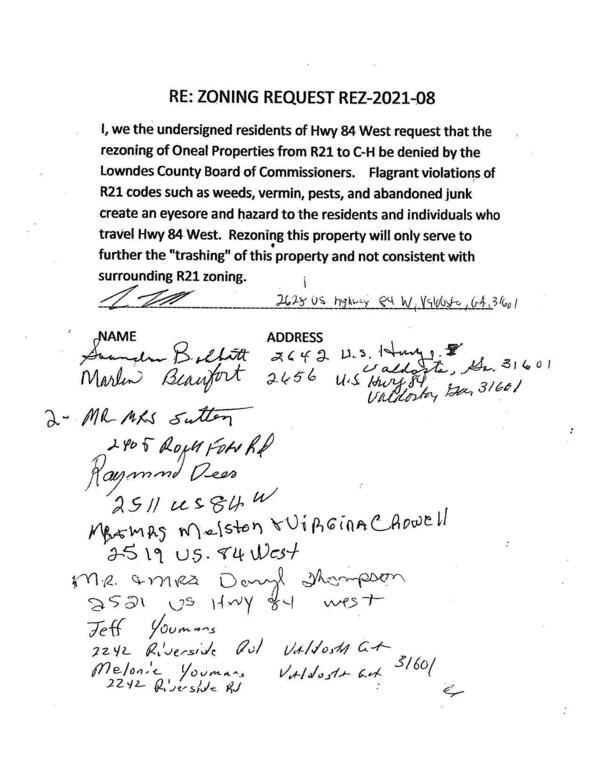 RE: ZONING REQUEST REZ-2021-08
I, we the undersigned residents of Hwy 84 West request that the
rezoning of Oneal Properties from R21 to C-H be denied by the
Lowndes County Board of Commissioners. Flagrant violations of
R21 codes such as weeds, vermin, pests, and abandoned junk
create an eyesore and hazard to the residents and individuals who
travel Hwy 84 West. Rezoning this property will only serve to
further the "trashing" of this property and not consistent with
surrounding R21 zoning.
2628 US highway 84 W, Valdosta, GA, 31601
NAME ADDRESS
2642 U.S. Hwy.
Valdosta, Ga. 31601
Marlen Beaufort 2656 U.S Hwy 84
Valdosta, Ga, 31601
2- MR MRS Sutton
2905 Rd
Raymond Dees
2511 US 84 W
MR & MRS Melston & ViRGinA CROWEll
2519 US. 84 West
MR. & MRS Daryl Thompson
2521 US HWY 84 west
Jeff Youmans
2242 Riverside Rd Valdosta GA
Melonie Youmans Valdosta GA 31601
2242 Riverside Rd